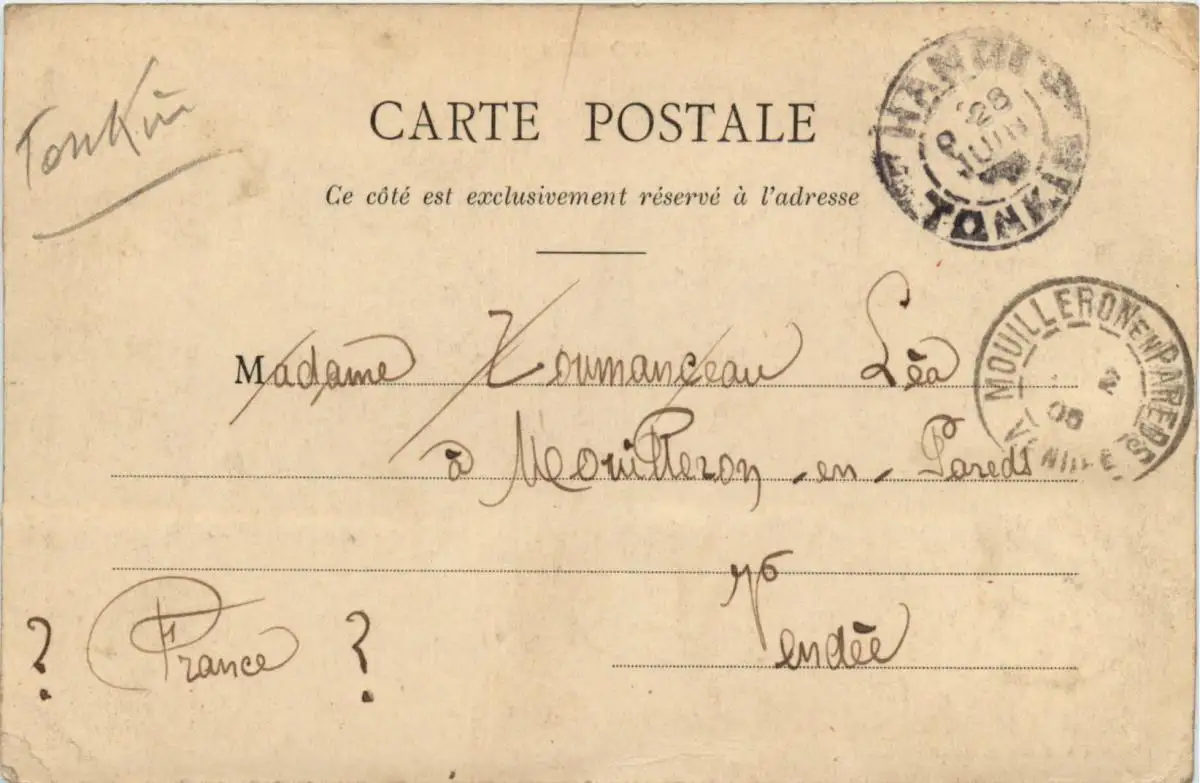 Tonkin
CARTE POSTALE
Ce côté est exclusivement réservé à l'adresse
HANOI
28
JUIN
TONKIN
MOUILLERON EN PAREDS
2
05
Madame Léa
à Mouilleron-en-Pareds
Vendée
? France ?